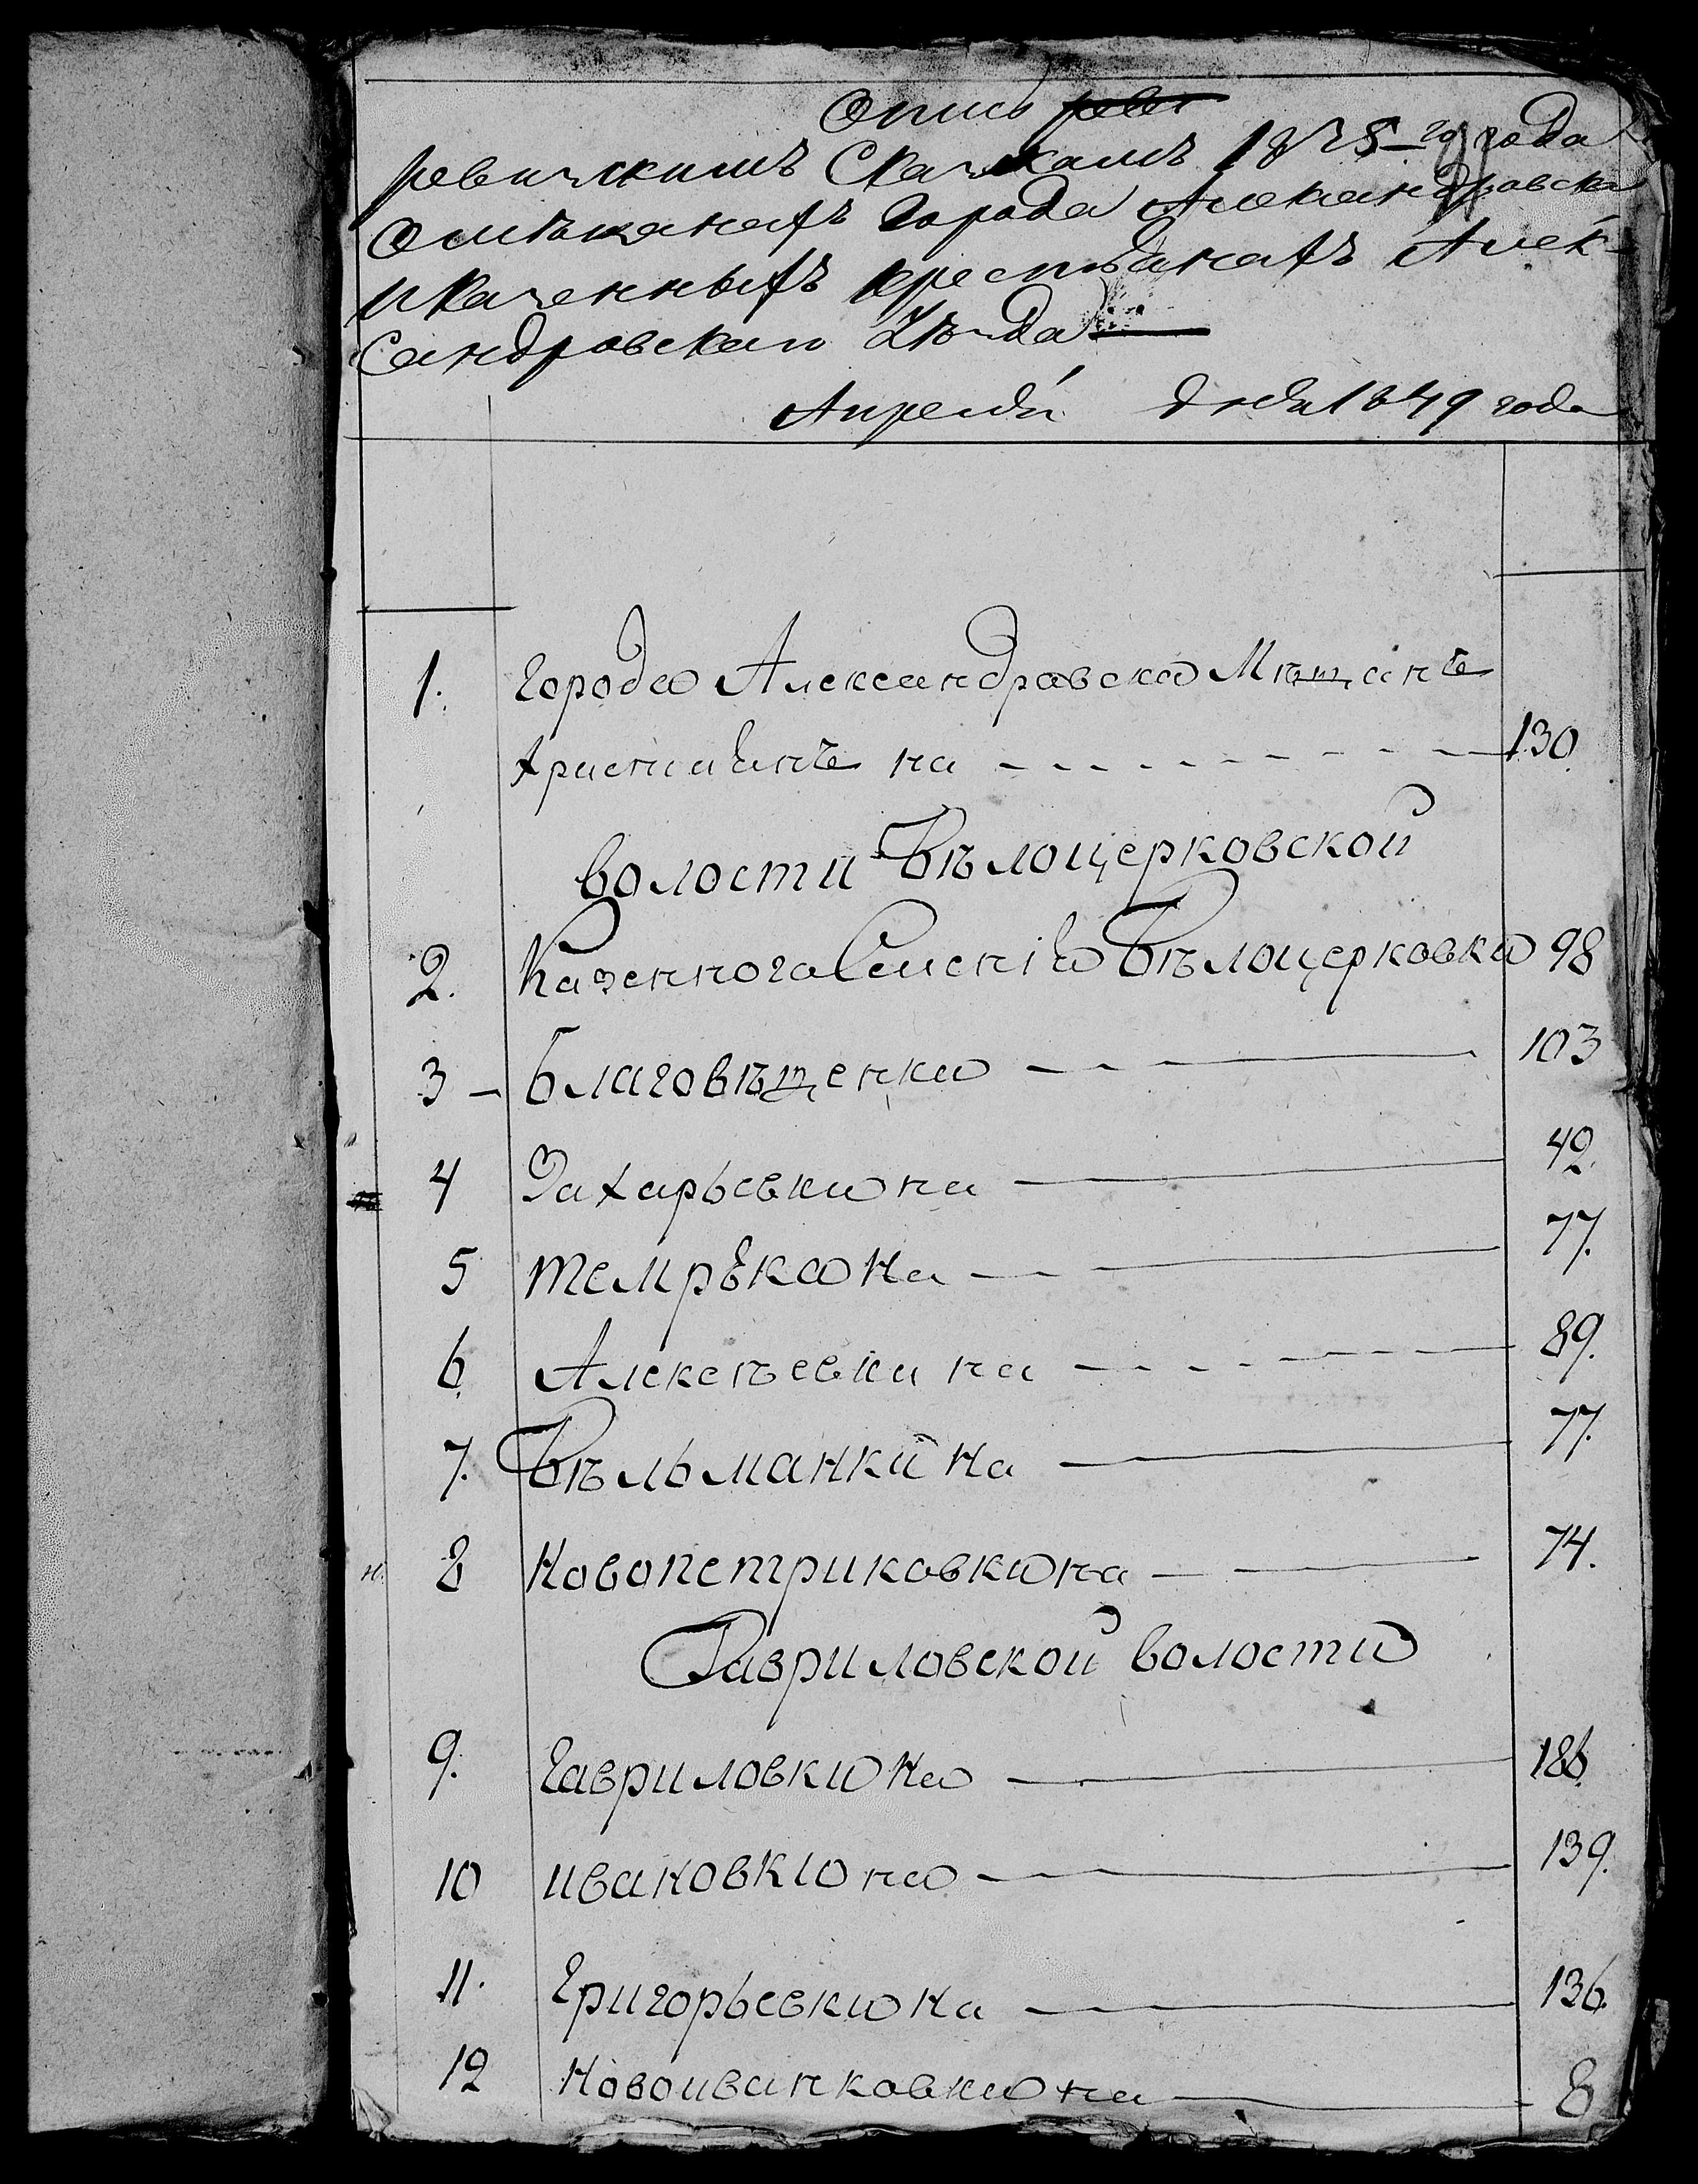 Опись
ревижскимъ Сказкамъ 18 года
Омѣщанахъ города Александровска
иказенныхъ крестьянахъ Алек-
сандровскаго Уѣзда
Апреля дня 1849 года
1. города Александровска Мѣщанъ
християнъ на 130.
волости Бѣлоцерковской
2. Казенного Селенія Бѣлоцерковки 98
3 - Благовѣщенки 103
4 Захарьевки на 42.
5 темрюка на 77.
6 Алексѣевки на 89.
7. Бѣльманки на 77.
8 Новопетриковки на 74.
Гавриловской волости
9. гавриловки на 186.
10 ивановки на 139.
11. Григорьевки на 136.
12 Новоиванковки на 8